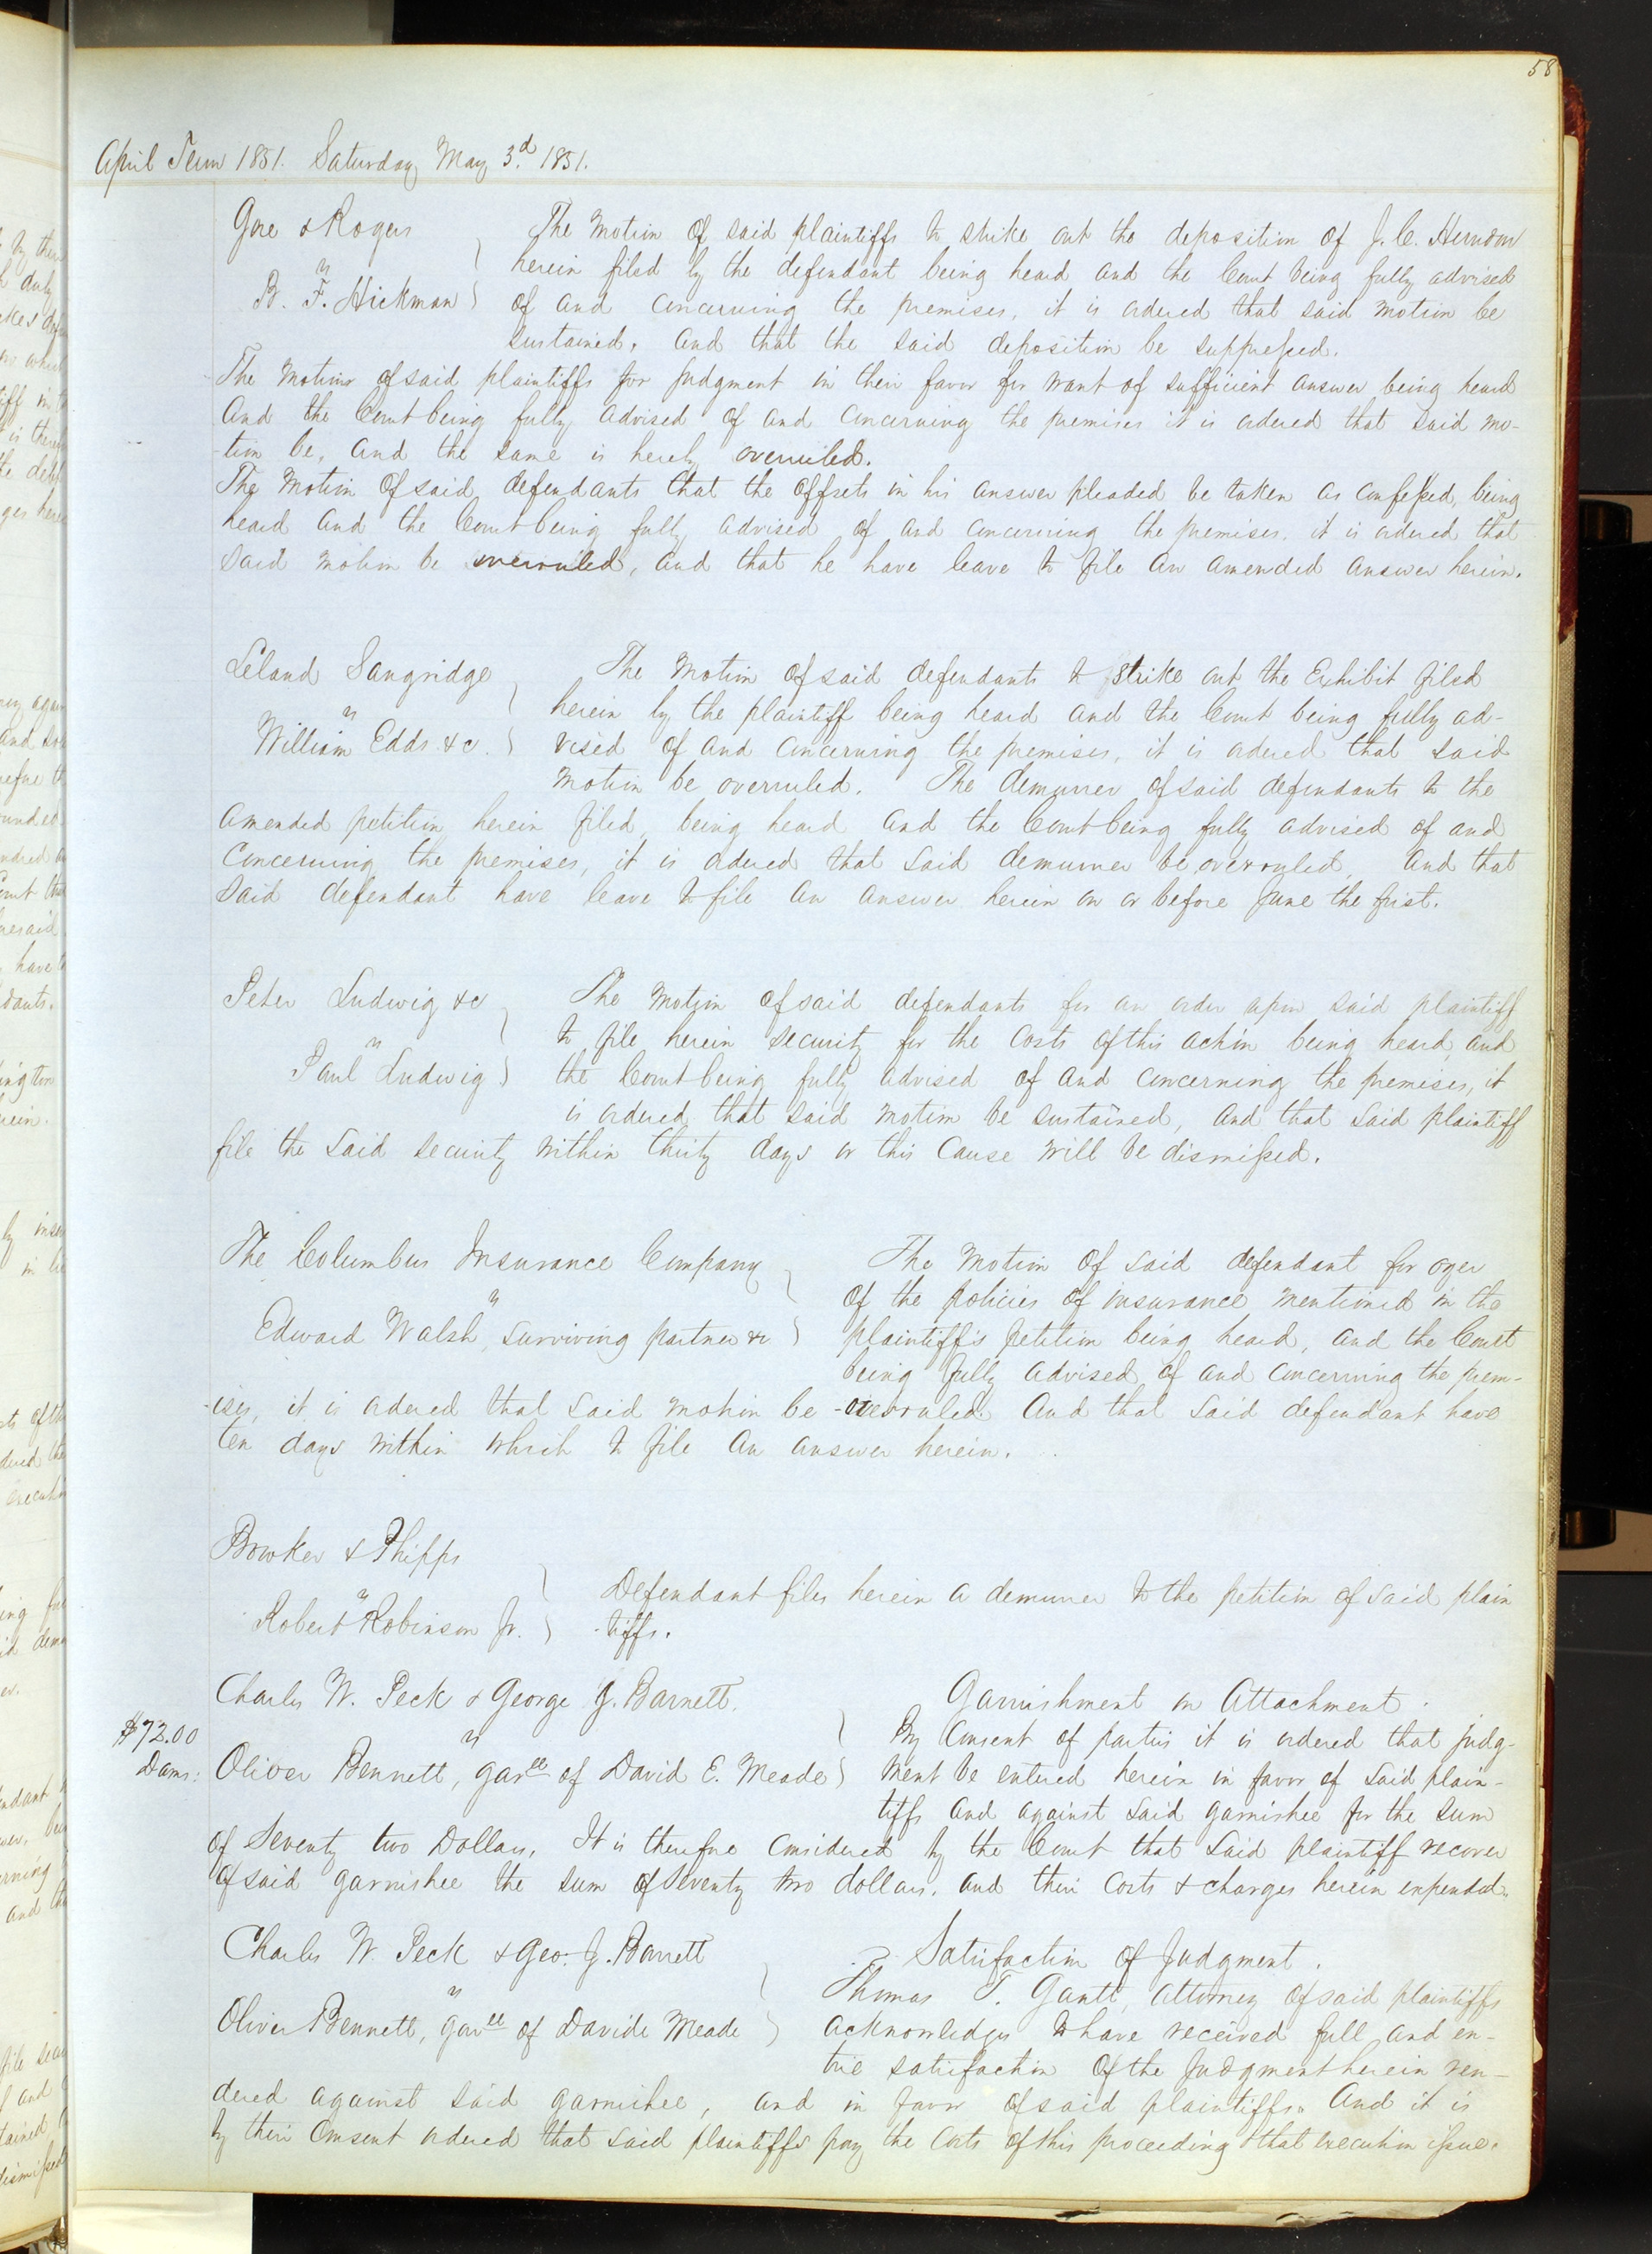 58
April Term 1851. Saturday May 3.d 1851.
Gore & Rogers
vs
B. F. Hickman
The Motion of said plaintiffs to strike out the deposition of J. C. Herndon
herein filed by the defendant being heard and the Court being fully advised
of and concerning the premises, it is ordered that said motion be
sustained, and that the said deposition be suppressed.
The Motion of said plaintiffs for judgment in their favor for want of sufficient answer being heard
and the Court being fully advised of and concerning the premises it is ordered that said mo-
-tion be, and the same is hereby overruled.
The Motion of said defendants that the offsets in his answer pleaded be taken as confessed, being
heard and the Court being fully advised of and concerning the premises, it is ordered that
said motion be overruled, and that he have leave to file an amended answer herein.
Leland Sangridge
vs
William Edds &c.
The Motion of said defendants to strike out the Exhibit filed
herein by the plaintiff being heard and the Court being fully ad-
vised of and concerning the premises, it is ordered that said
motion be overruled. The demurrer of said defendants to the
amended petition herein filed, being heard and the Court being fully advised of and
concerning the premises, it is ordered that said demurrer be overruled, and that
said defendant have leave to file an answer herein on or before June the first.
Peter Ludwig &c
vs
Paul Ludwig
The Motion of said defendants for an order upon said plaintiff
to file herein security for the costs of this action being heard, and
the Court being fully advised of and concerning the premises, it
is ordered that said motion be sustained, and that said plaintiff
file the said security within thirty days or this cause will be dismissed.
The Columbus Insurance Company
vs
Edward Walsh, surviving partner &c
The Motion of said defendant for oyer
of the policies of insurance mentioned in the
plaintiff's petition being heard, and the Court
being fully advised of and concerning the prem-
-ises, it is ordered that said motion be overruled. And that said defendant have
ten days within which to file an answer herein.
Bowker & Phipps
vs
Robert Robinson Jr.
Defendant files herein a demurrer to the petition of said plain
-tiffs.
Charles W. Peck & George J. Barnett.
vs
Oliver Bennett, garee of David E. Meade
$72.00
Dams:
Garnishment on Attachment.
By Consent of parties it is ordered that judg-
ment be entered herein in favor of said plain-
tiffs and against said garnishee for the sum
of Seventy two Dollars, It is therefore considered by the Court that said plaintiff recover
of said garnishee the sum of Seventy two dollars, and their costs & charges herein expended.
Charles W. Peck & Geo: J. Barnett
vs
Oliver Bennett, garee of David E Meade
Satisfaction of Judgment.
Thomas T. Gantt, attorney of said plaintiffs
acknowledges to have received full and en-
tire satisfaction of the Judgment herein ren-
dered against said garnishee, and in favor of said plaintiffs. And it is
by their consent ordered that said plaintiffs pay the costs of this proceeding & that execution issue.